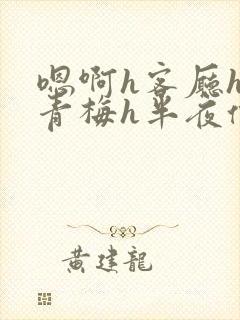 嗯啊h客厅h
青梅h半夜
黄建龙